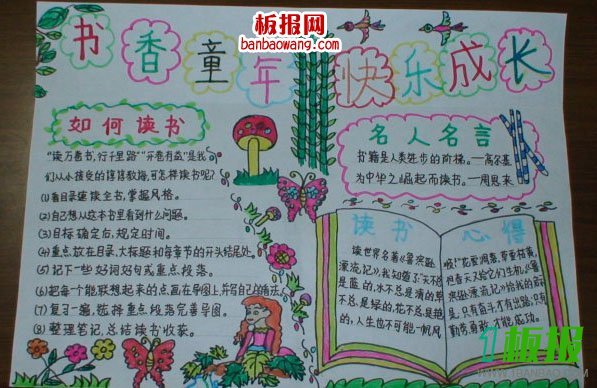 板报网
banbaowang.com
书香童年 快乐成长
如何读书
"读万卷书,行千里路""开卷有益"是我
们从小接受的谆谆教海,可怎样读书呢?
(1)看目录建读全书,掌握风格。
(2)自己想从这本书里看到什么问题。
(3)目标确定后,规定时间。
(4)重点放在目录、大标题和每章节的开头结尾处。
(5)记下一些好词好句或重点段落。
(6)把每个能联想起来的点画在导图上,并写自己的看法
(7)复习一遍,选择重点段落完善导图。
(8)整理笔记,总结读书收获。
名人名言
书籍是人类进步的阶梯。—高尔基
为中华之崛起而读书。—周恩来
读书 心得
读世界名著《鲁滨孙
漂流记》,我知道了:天不总
是蓝的,水不总是清的,草
不总是绿的,花不总是艳
的,人生也不可能一帆风
顺!花要凋落,草要枯黄,
但春天又给它们生机。《鲁
滨孙漂流记》给我的启示
是,只有奋斗才有出路,只有
勤劳、勇敢,才能成功。
板报
WWW.1BANBAO.COM